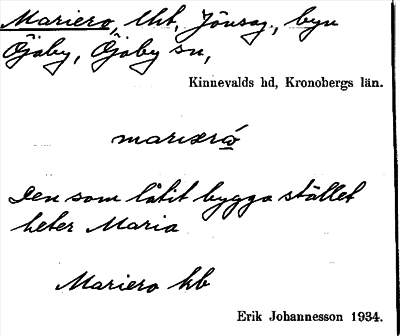 Mariero, lht, Jönsag., byn
Öjaby, Öjaby sn,
Kinnevalds hd, Kronobergs län.
Den som låtit bygga stället
heter Maria
Mariero kb
Erik Johannesson 1934.